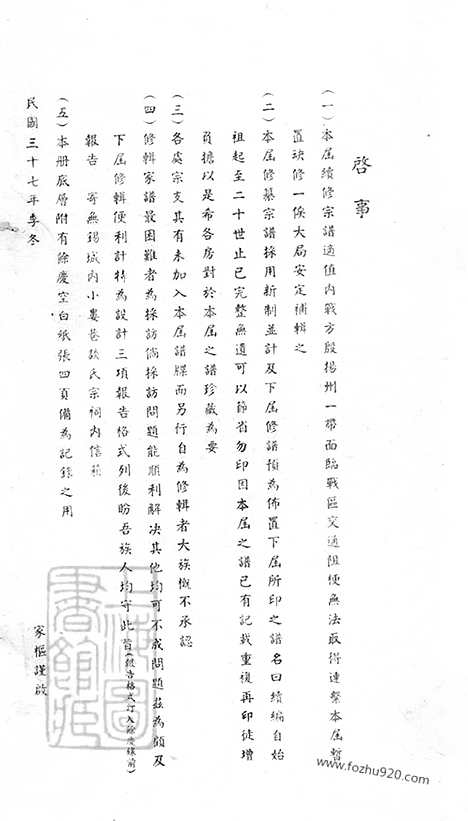 啓事
(一)本屆續修宗譜適值內戰方殷揚州一帶面臨戰區交通阻梗無法取得連繫本屆暫
置缺修一俟大局安定補輯之
(二)本屆修纂宗譜採用新制並計及下屆修譜預為佈置下屆所印之譜名曰續編自始
祖起至二十世止已完整無遺可以節省勿印因本屆之譜已有記載重複再印徒增
負擔以是希各房對於本屆之譜珍藏為要
(三)各處宗支其有未加入本屆譜牒而另行自為修輯者大族概不承認
(四)修輯家譜最困難者為採訪倘採訪問題能順利解決其他均可不成問題茲為顧及
下屆修輯便利計特為設計三項報告格式列後盼吾族人均守此旨(報告格式訂入餘慶錄前)
報告 寄無錫城內小婁巷談氏宗祠內信箱
(五)本册底層附有餘慶空白紙張四頁備為記錄之用
民國三十七年季冬
家樞謹啟
圖書館藏
www.fozhu920.com